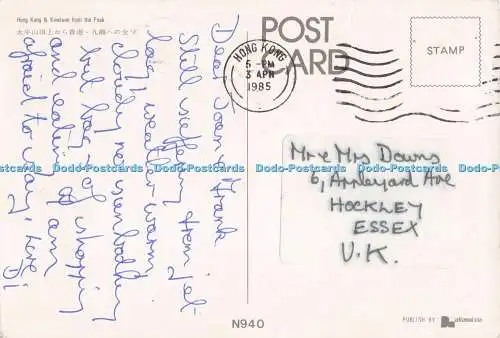 Hong Kong & Kowloon from the Peak
太平山頂上から香港・九龍への全望
POST
CARD
STAMP
HONG KONG
5 - PM
3 APR
1985
Dear Joan & Frank
Still suffering from jet
lag, weather warm,
cloudy no sunbathing
but lots of shopping
and eating I am
afraid to say, love
Di
Mr & Mrs Downs
6, Appleyard Ave
HOCKLEY
ESSEX
U.K.
N940
PUBLISH BY
Dodo-Postcards Dodo-Postcards Dodo-Postcards Dodo-Postcards Dodo-Postcards Dodo-Postcards